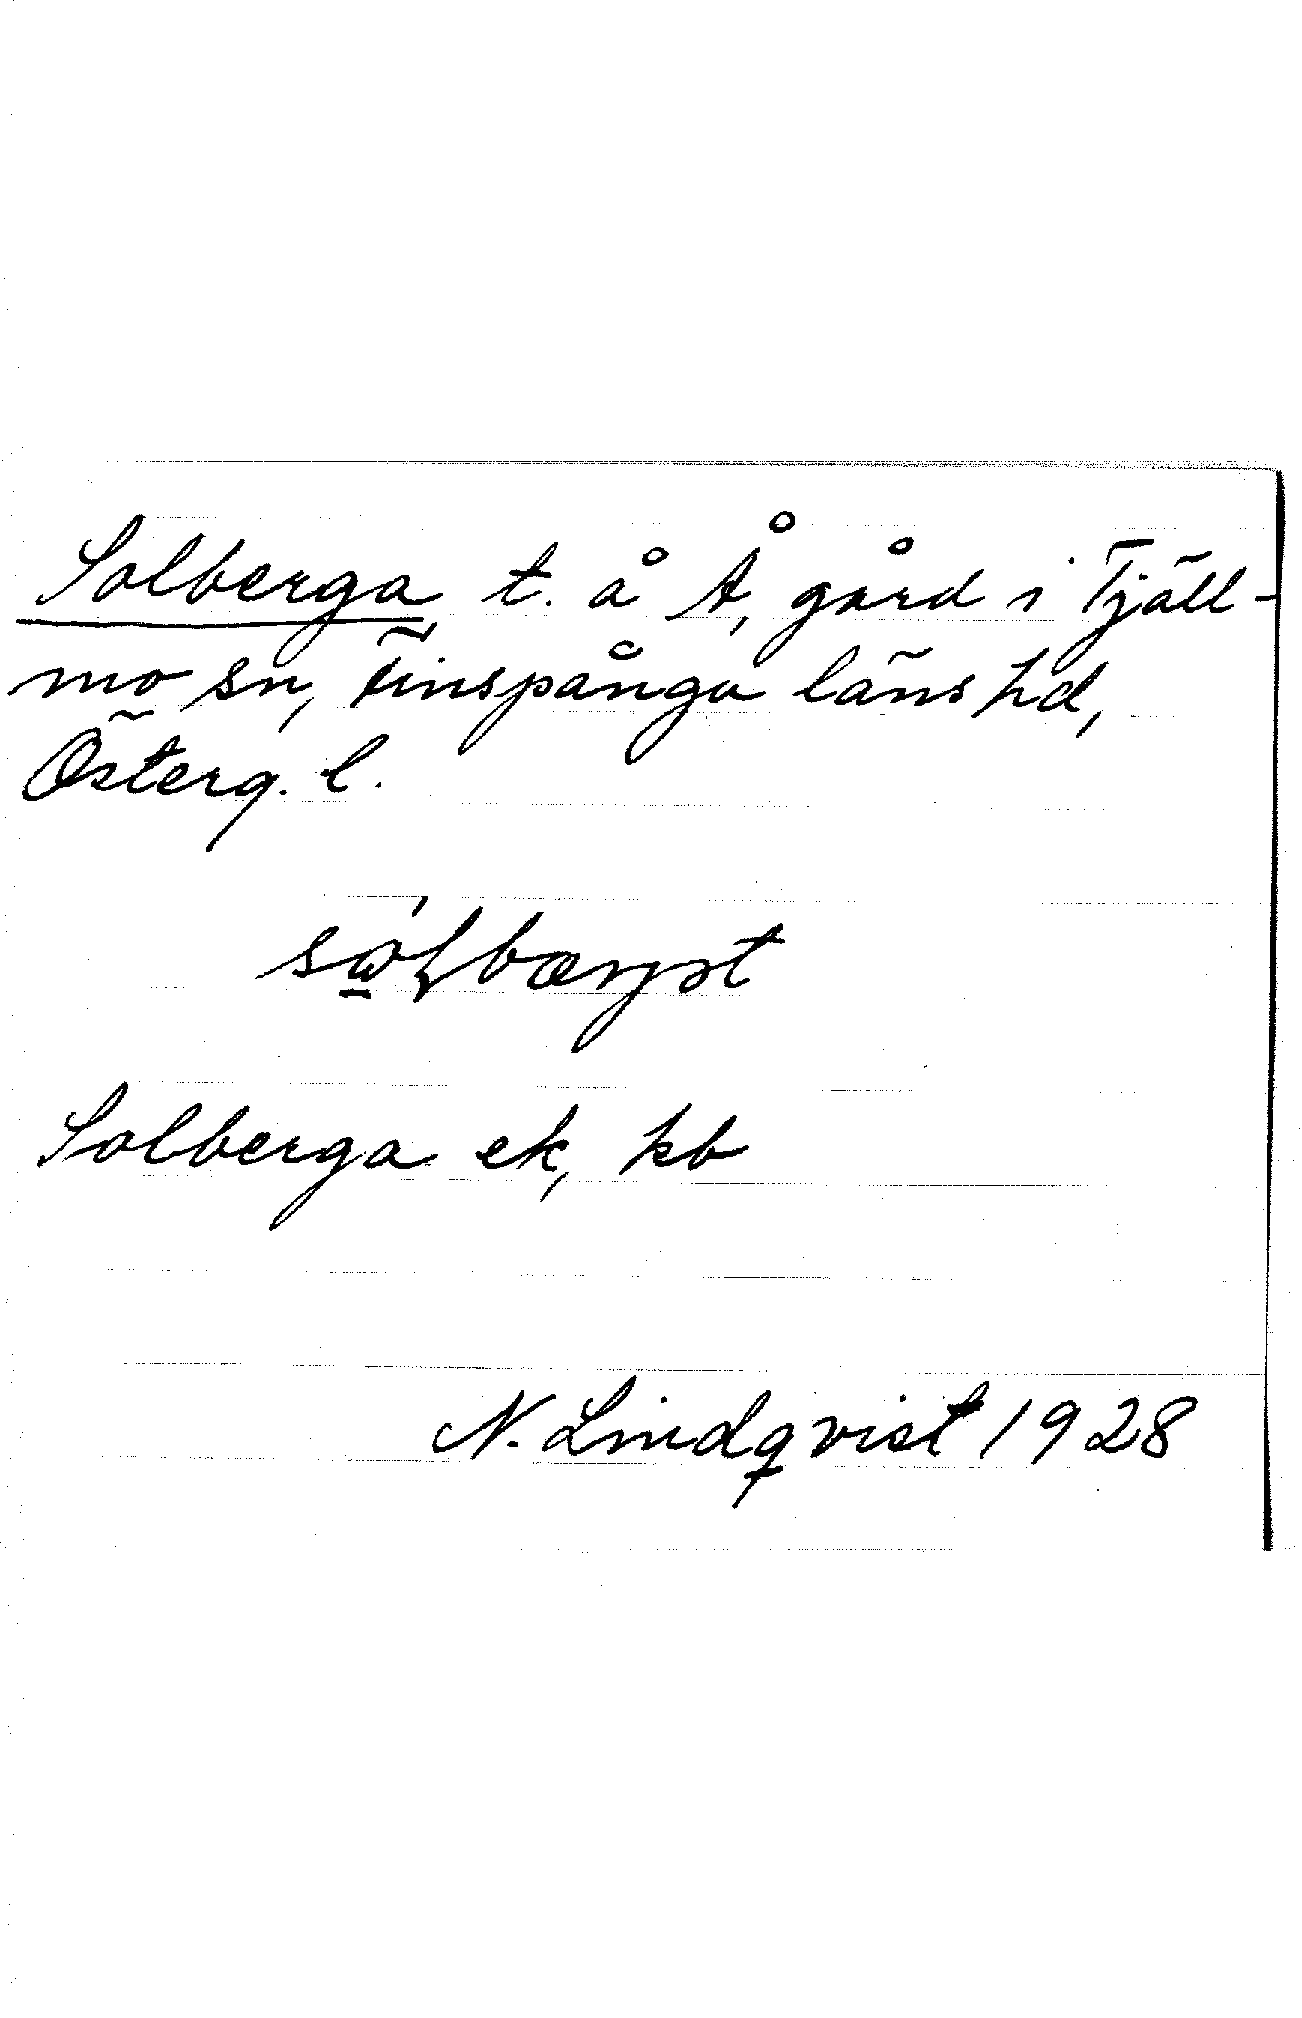 Solberga t. å Å, gård i Tjäll-
mo sn, Finspånga läns hd,
Österg. l.
Solberga ek, kb
N. Lindqvist 1928